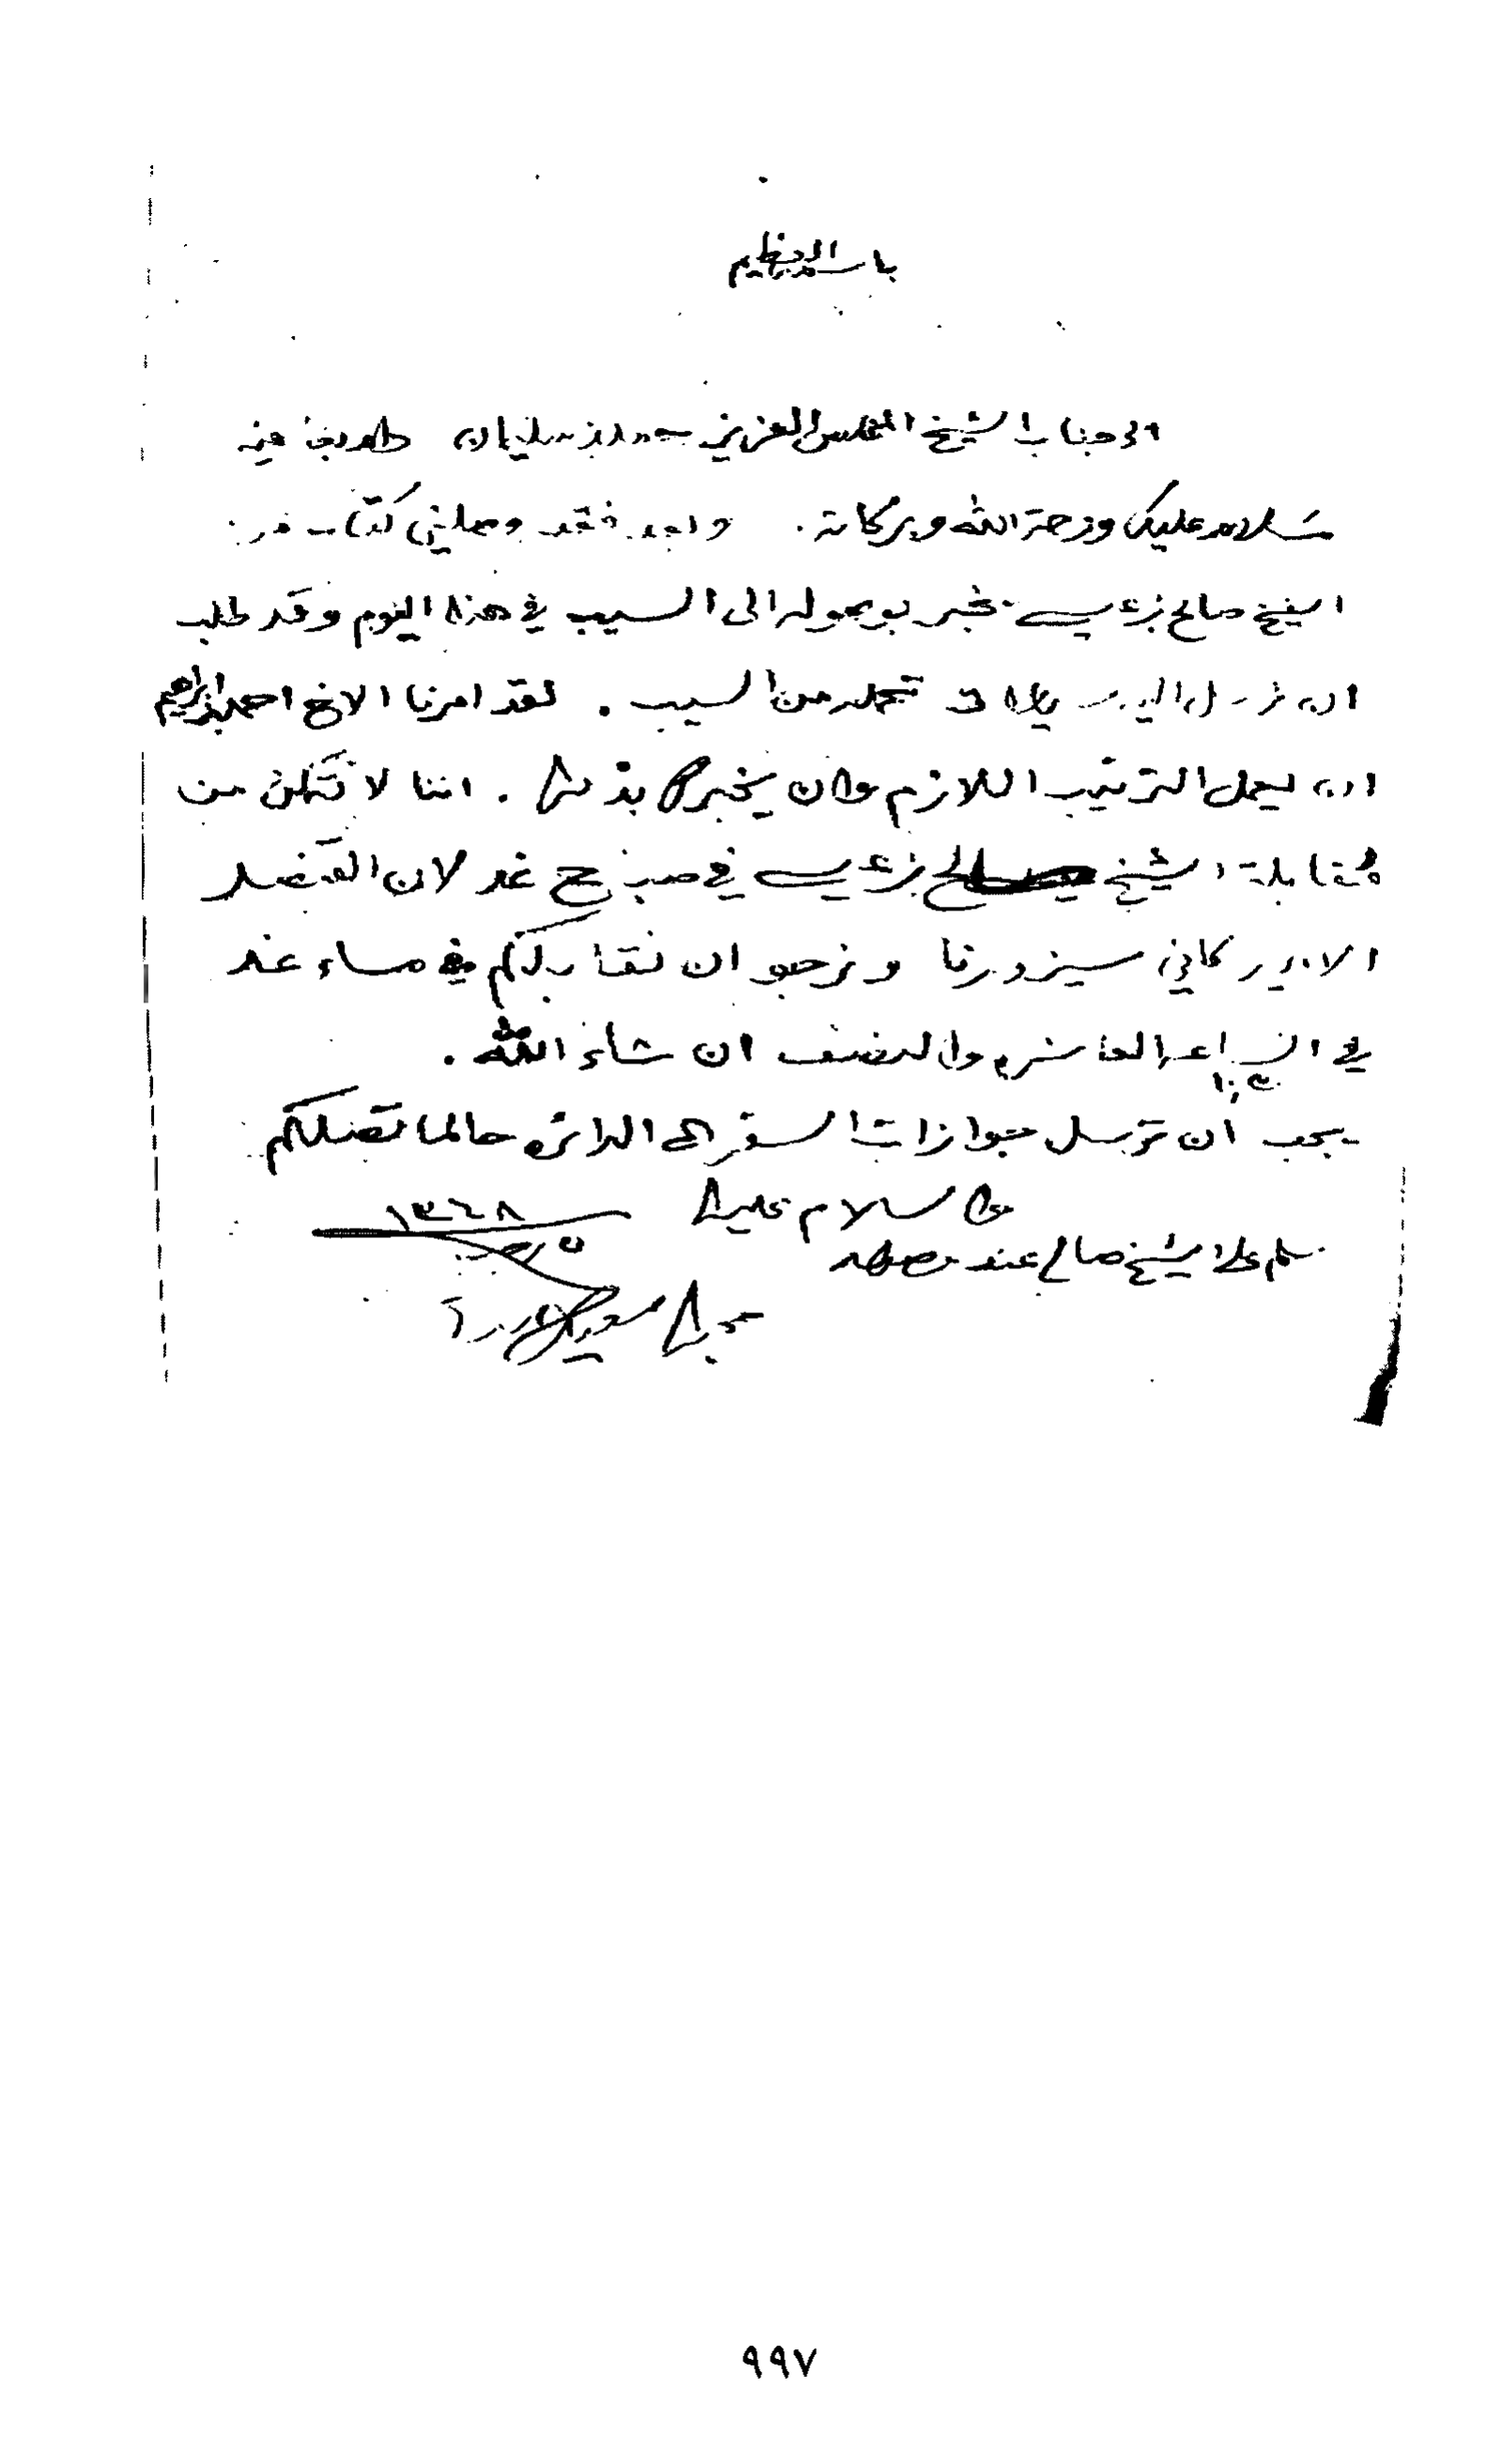 باسم الله العظيم
الى جناب الشيخ المخلص العزيز حمد بن سليمان
سلام عليك ورحمة الله وبركاته. وبعد فقد وصلني كتاب من
الشيخ صالح بن عيسى يخبر بوصوله الى السيب في هذا اليوم وقد طلب
ان نرسل اليه تحمله من السيب. لقد امرنا الاخ احمد بن ابراهيم
ان يعمل الترتيب اللازم وان يخبرك بذلك. اننا لا نتمكن من
مقابلة الشيخ صالح بن عيسى في صباح غد لان القنصل
الامريكاني سيزورنا ونرجو ان نقابلكم في مساء غد
في الساعة العاشرة والنصف ان شاء الله.
يجب ان ترسل جوازات السفر الى الدائرة حالما تصلكم
والسلام عليك ١٣٦٨
سلم على الشيخ صالح عند وصوله
٩٩٧